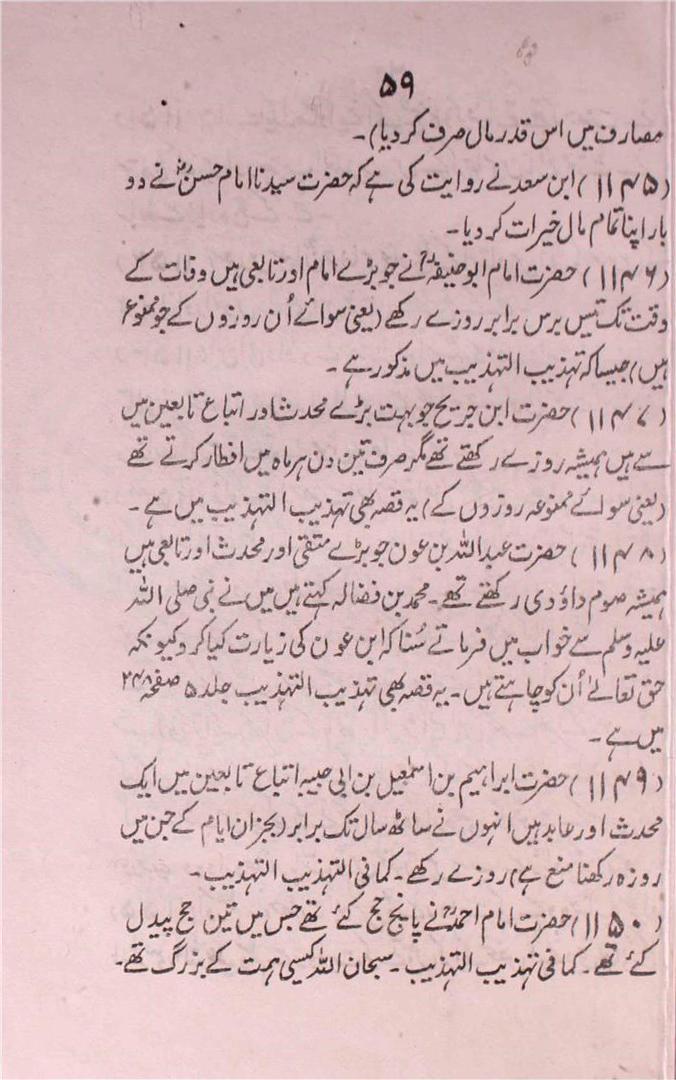 ۵۹
مصارف میں اس قدر مال صرف کر دیا)۔
(۱۱۴۵) ابن سعد نے روایت کی ہے کہ حضرت سیدنا امام حسنؓ نے دو
بار اپنا تمام مال خیرات کر دیا۔
(۱۱۴۶) حضرت امام ابو حنیفہؒ نے جو بڑے امام اور تابعی ہیں وفات کے
وقت تک تیس برس برابر روزے رکھے (یعنی سوائے اُن روزوں کے جو ممنوع
ہیں) جیسا کہ تہذیب التہذیب میں مذکور ہے۔
(۱۱۴۷) حضرت ابن جریج جو بہت بڑے محدث اور اتباع تابعین میں
سے ہیں ہمیشہ روزے رکھتے تھے مگر صرف تین دن ہر ماہ میں افطار کرتے تھے
(یعنی سوائے ممنوعہ روزوں کے) یہ قصہ بھی تہذیب التہذیب میں ہے۔
(۱۱۴۸) حضرت عبد اللہ بن عون جو بڑے متقی اور محدث اور تابعی ہیں
ہمیشہ صوم داؤدی رکھتے تھے۔ محمد بن فضالہ کہتے ہیں میں نے نبی صلی اللہ
علیہ وسلم سے خواب میں فرماتے سُنا کہ ابن عون کی زیارت کیا کرو کیونکہ
حق تعالےٰ اُن کو چاہتے ہیں۔ یہ قصہ بھی تہذیب التہذیب جلد ۵ صفحہ ۲۴۸
میں ہے۔
(۱۱۴۹) حضرت ابراہیم بن اسمٰعیل بن ابی حبیبہ اتباع تابعین میں ایک
محدث اور عابد ہیں انہوں نے ساٹھ سال تک برابر (بجز ان ایام کے جن میں
روزہ رکھنا منع ہے) روزے رکھے۔ کما فی التہذیب التہذیب۔
(۱۱۵۰) حضرت امام احمدؒ نے پانچ حج کئے تھے جس میں تین حج پیدل
کئے تھے۔ کما فی تہذیب التہذیب۔ سبحان اللہ کیسی ہمت کے بزرگ تھے۔